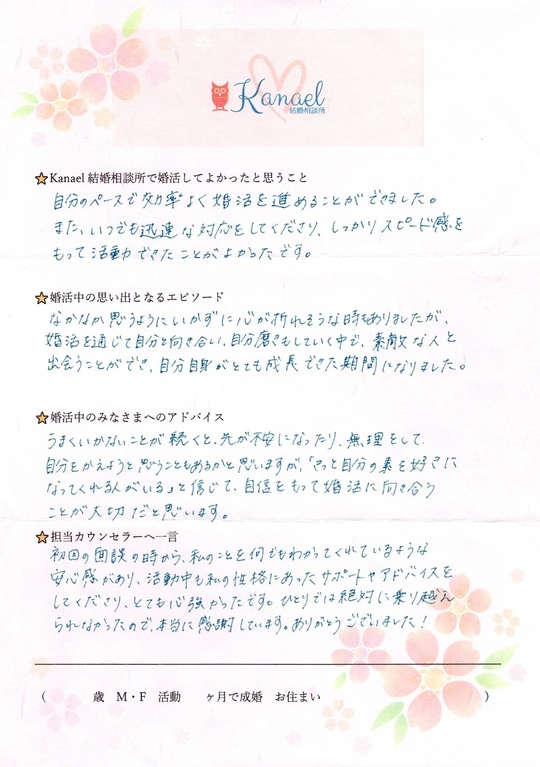 Kanael
結婚相談所
Kanael 結婚相談所で婚活してよかったと思うこと
自分のペースで効率よく婚活を進めることができました。
また、いつでも迅速な対応をしてくださり、しっかりスピード感を
もって活動できたことがよかったです。
婚活中の思い出となるエピソード
なかなか思うようにいかずに心が折れそうな時もありましたが、
婚活を通じて自分と向き合い、自分磨きもしていく中で、素敵な人と
出会うことができ、自分自身がとても成長できた期間になりました。
婚活中のみなさまへのアドバイス
うまくいかないことが続くと、先が不安になったり、無理をして
自分をかえようと思うこともあるかと思いますが、「きっと自分の素を好きに
なってくれる人がいる」と信じて、自信をもって婚活に向き合う
ことが大切だと思います。
担当カウンセラーへ一言
初回の面談の時から、私のことを何でもわかってくれているような
安心感があり、活動中も私の性格にあったサポートやアドバイスを
してくださり、とても心強かったです。ひとりでは絶対に乗り越え
られなかったので、本当に感謝しています。ありがとうございました！
（　　　歳　M・F　活動　　ヶ月で成婚　お住まい　　　　）